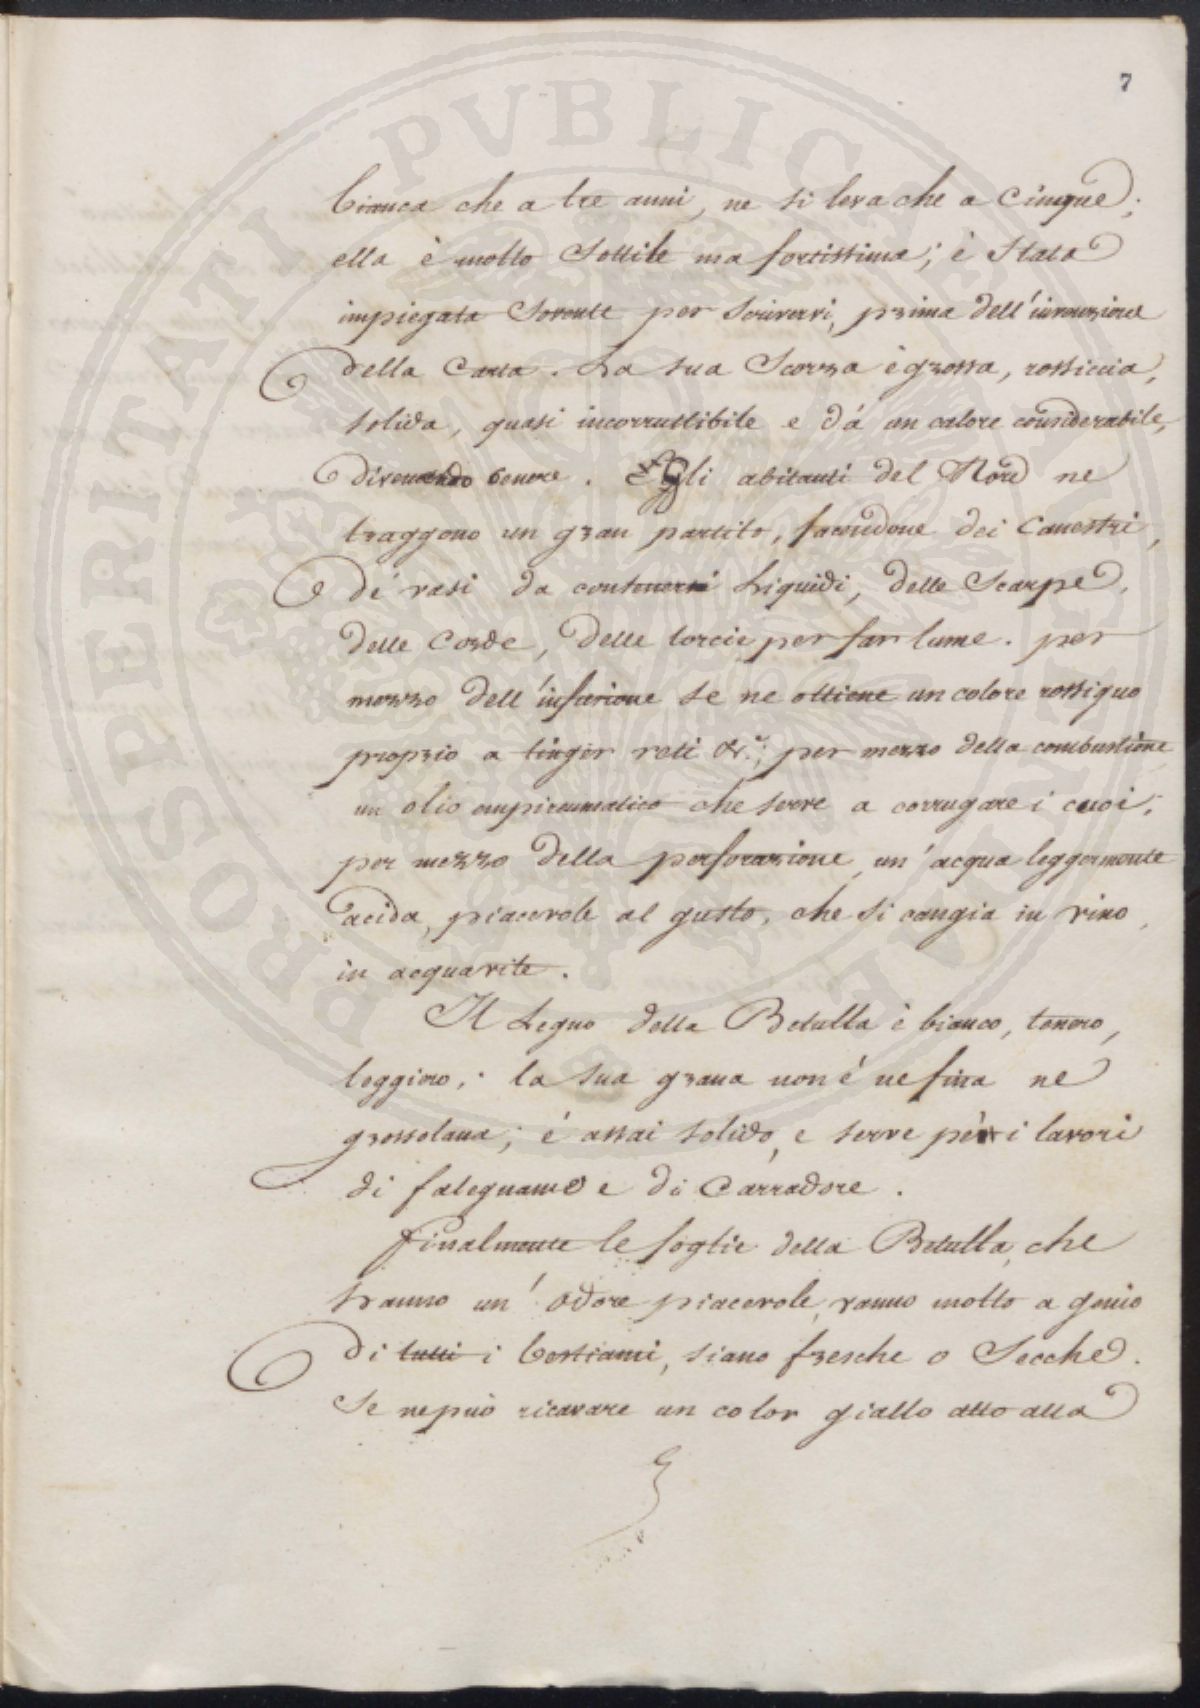 7
bianca che a tre anni, ne si leva che a Cinque;
ella è molto Sottile ma fortissima; è Stata
impiegata Sovente per scriverci, prima dell'invenzione
della Carta. La sua Scorza è grossa, rossiccia,
solida, quasi incorruttibile e dá un calore considerabile,
divenendo cenere. Gli abitanti del Nord ne
traggono un gran partito, facendone dei Canestri,
de' vasi da contenersi Liquidi, delle Scarpe,
delle Corde, delle torcie per far lume. per
mezzo dell'infusione se ne ottiene un colore rossigno
proprio a tinger reti &c.; per mezzo della combustione
un olio empireumatico che serve a corrugare i cuoi;
per mezzo della perforazione, un'acqua leggermente
acida, piacevole al gusto, che si cangia in vino,
in acquavite.
Il Legno della Betulla è bianco, tenero,
leggiero; la sua grana non é ne fina ne
grossolana; é assai solido, e serve per i lavori
di falegname e di Carradore.
finalmente le foglie della Betulla, che
hanno un' odore piacevole, vanno molto a genio
di tutti i bestiami, siano fresche o Secche.
Se ne può ricavare un color giallo atto alla
PROSPERITATI PVBLICAE